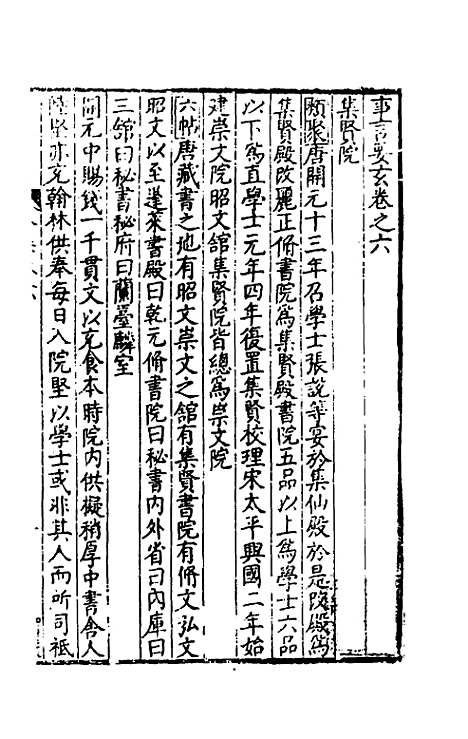 事言要玄卷之六
集賢院
類聚唐開元十三年召學士張說等宴於集仙殿於是改殿爲
集賢殿改麗正脩書院爲集賢殿書院五品以上爲學士六品
以下爲直學士元年四年復置集賢校理宋太平興國二年始
建崇文院昭文舘集賢院皆總爲崇文院
六帖唐藏書之地有昭文崇文之舘有集賢書院有脩文弘文
昭文以至蓬萊書殿曰乾元脩書院曰秘書內外省曰內庫曰
三舘曰秘書秘府曰蘭臺麟室
開元中賜錢一千貫文以充食本時院内供擬稍厚中書舍人
陸堅亦充翰林供奉每日入院堅以學士或非其人而所司祗